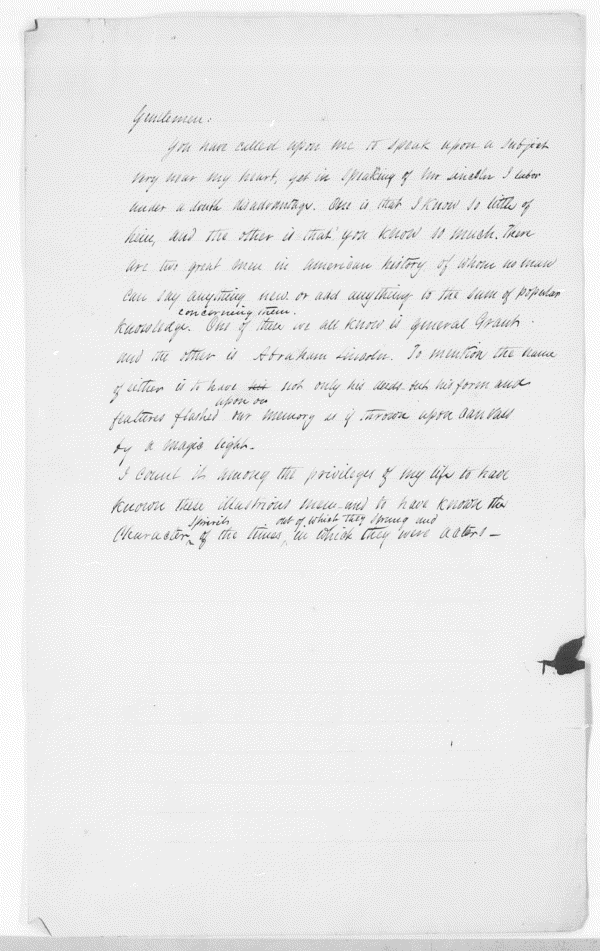 Gentlemen:
You have called upon me to speak upon a subject
very near my heart, yet in speaking of Mr Lincoln I labor
under a double disadvantage. One is that I know so little of
him, and the other is that you know so much. There
are two great men in American history of whom no man
can say anything new or add anything to the sum of popular
concerning them.
knowledge. One of these we all know is General Grant
and the other is Abraham Lincoln. To mention the name
of either is to have his not only his deeds but his form and
upon our
features flashed our memory as if thrown upon canvas
by a magic light.
I count it among the privileges of my life to have
known these illustrious men and to have known the
spirits out of which they sprung and
Character of the times, in which they were actors—